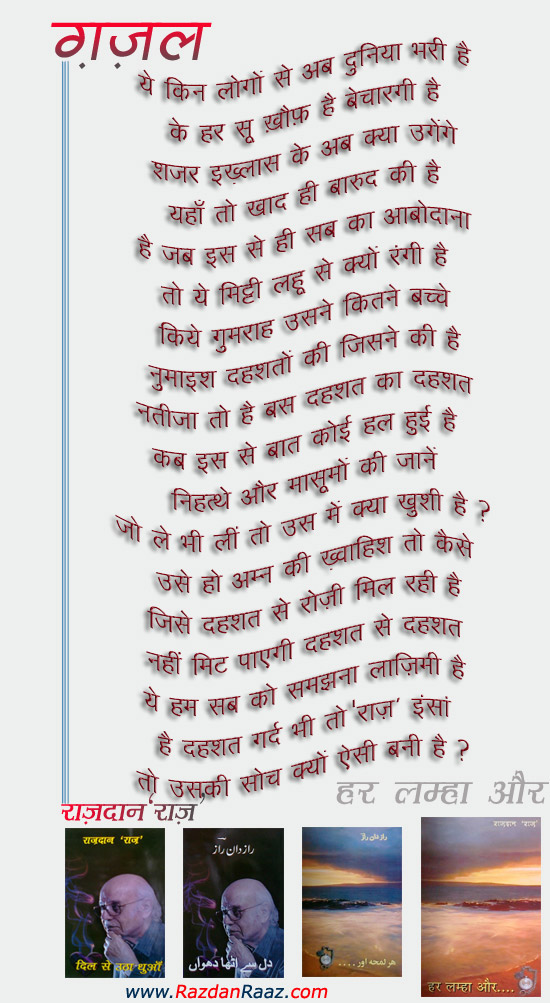 ग़ज़ल
ये किन लोगों से अब दुनिया भरी है
के हर सू ख़ौफ़ है बेचारगी है
शजर इख़्लास के अब क्या उगेंगे
यहाँ तो खाद ही बारुद की है
है जब इस से ही सब का आबोदाना
तो ये मिट्टी लहू से क्यों रंगी है
किये गुमराह उसने कितने बच्चे
नुमाइश दहशतों की जिसने की है
नतीजा तो है बस दहशत का दहशत
कब इस से बात कोई हल हुई है
निहत्थे और मासूमों की जानें
जो ले भी लीं तो उस में क्या खुशी है ?
उसे हो अम्न की ख़्वाहिश तो कैसे
जिसे दहशत से रोज़ी मिल रही है
नहीं मिट पाएगी दहशत से दहशत
ये हम सब को समझना लाज़िमी है
है दहशत गर्द भी तो 'राज़' इंसां
तो उसकी सोच क्यों ऐसी बनी है ?
हर लम्हा और
राज़दान 'राज़'
राज़दान 'राज़'
दिल से उठा धुआँ
راز دان راز
دل سے اٹھا دھواں
راز دان راز
ہر لمحہ اور ....
राज़दान 'राज़'
हर लम्हा और....
www.RazdanRaaz.com